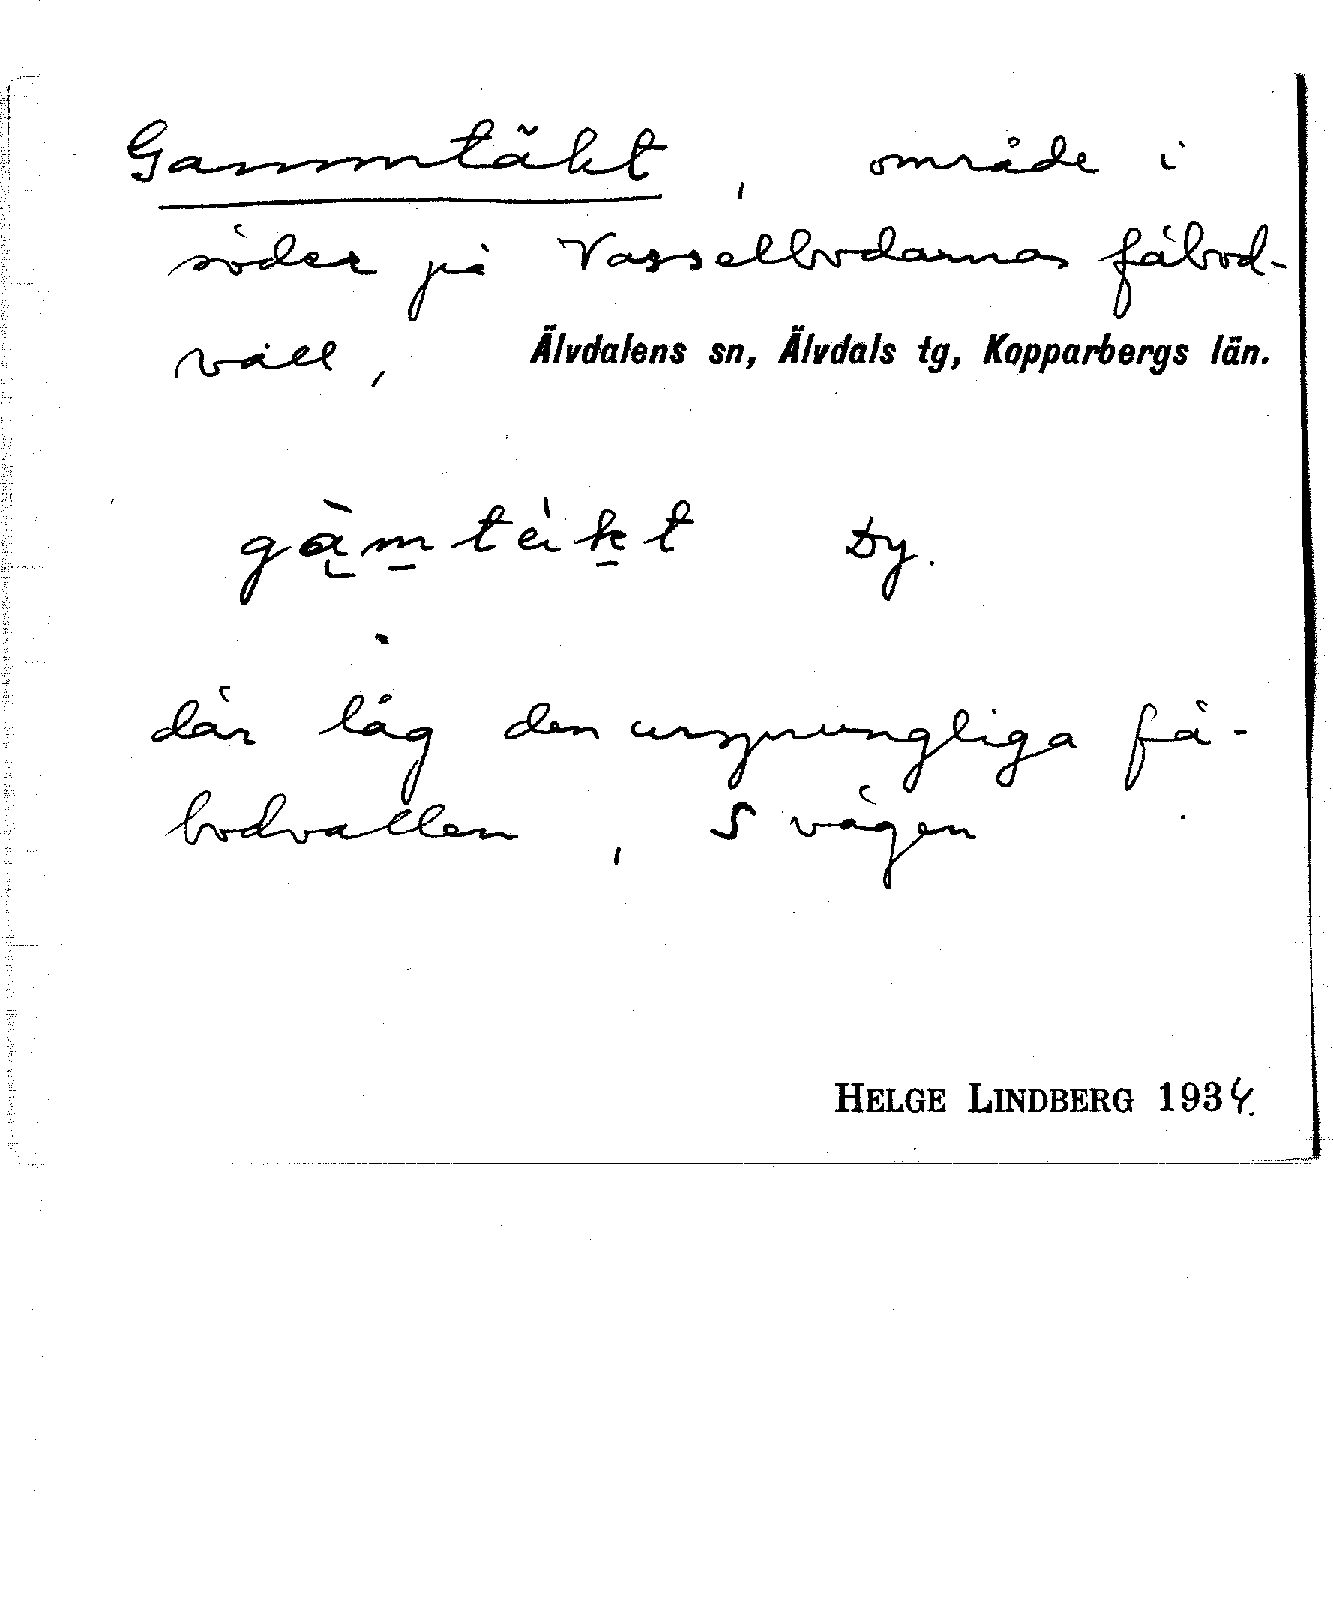 Gammtäkt, område i
söder på Vasselbodarnas fäbod-
vall, Älvdalens sn, Älvdals tg, Kopparbergs län.
gàmtèkt Dy.
där låg den ursprungliga fä-
bodvallen, S vägen
HELGE LINDBERG 1934.